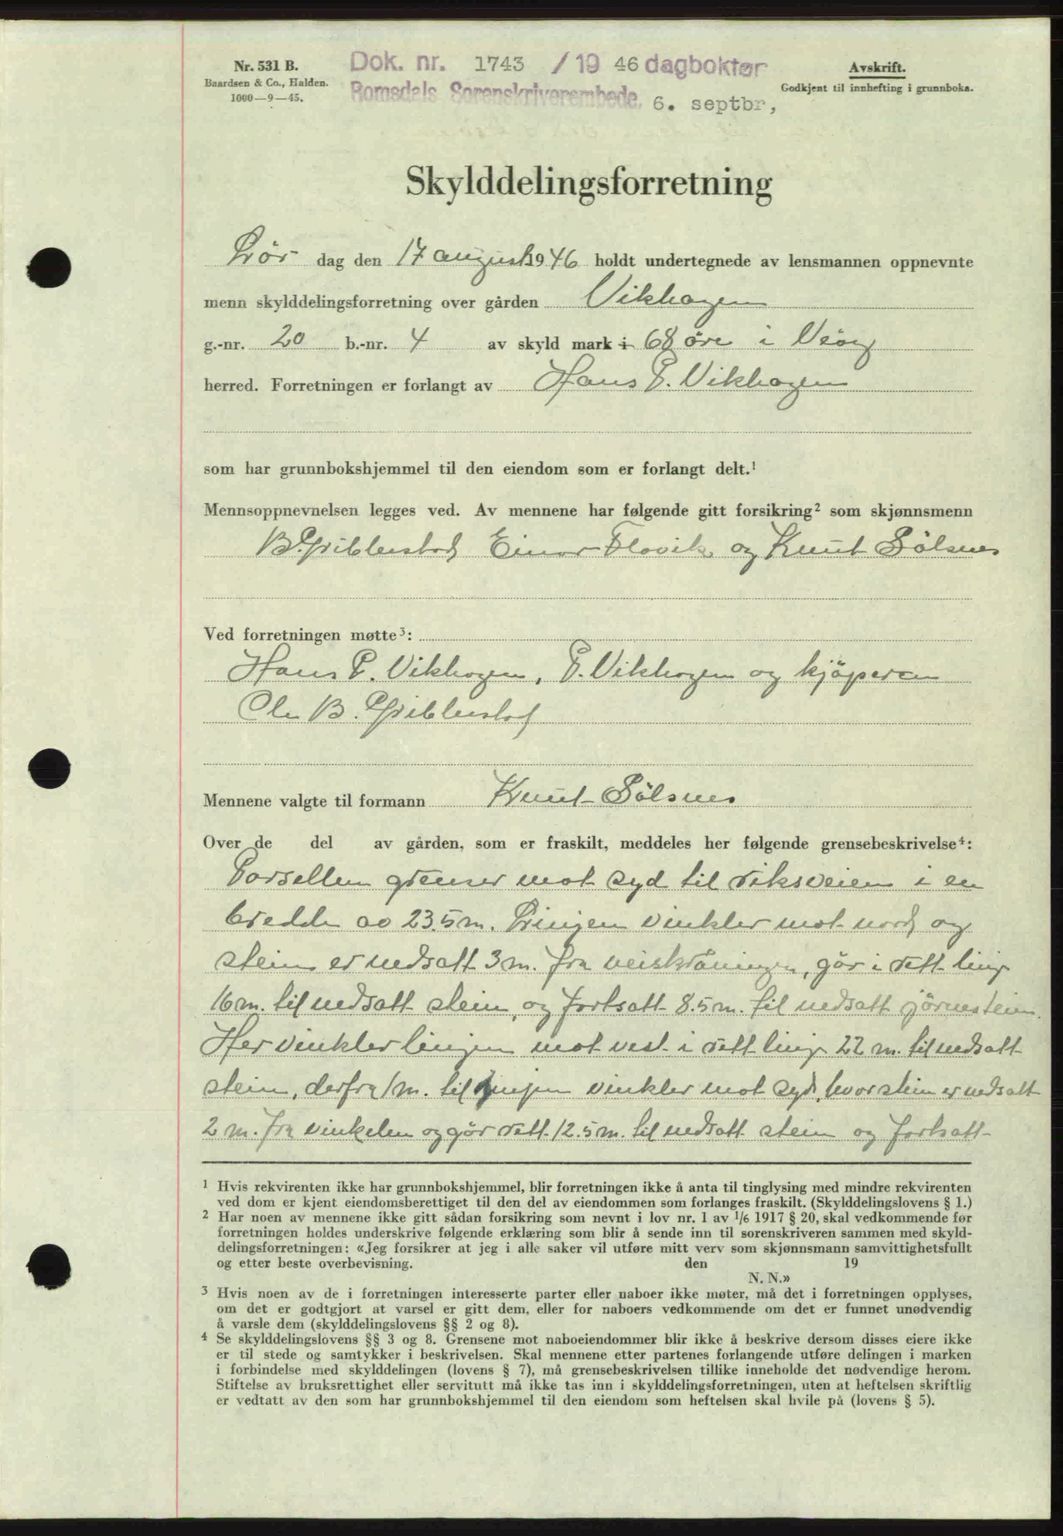 Nr. 531 B.
Baardsen & Co., Halden.
1000—9—45.
Dok. nr. 1743 / 19 46 dagboktør
Romsdals Sorenskriverembede. 6. septbr,
Avskrift.
Godkjent til innhefting i grunnboka.
Skylddelingsforretning
Lör dag den 17 august 1946 holdt undertegnede av lensmannen oppnevnte
menn skylddelingsforretning over gården Vikhagen
g.-nr. 20 b.-nr. 4 av skyld mark i 68 öre i Veöy
herred. Forretningen er forlangt av Hans P. Vikhagen
som har grunnbokshjemmel til den eiendom som er forlangt delt.¹
Mennsoppnevnelsen legges ved. Av mennene har følgende gitt forsikring² som skjønnsmenn
Einar Flovik og Knut Sölsnes
Ved forretningen møtte³:
Hans P. Vikhagen, P. Vikhagen og kjöperen
Ole B.
Mennene valgte til formann Knut Sölsnes
Over de del av gården, som er fraskilt, meddeles her følgende grensebeskrivelse⁴:
Parsellen grenser mot syd til riksveien i en
bredde av 23.5 m. Linjen vinkler mot nord og
stein er nedsatt 3 m. fra veiskråningen, går i rett linje
16 m. til nedsatt stein, og fortsatt 8.5 m. til nedsatt jörnestein.
Her vinkler linjen mot vest i rett linje 22 m. til nedsatt
stein, derfra 1 m. til linjen vinkler mot syd, hvor stein er nedsatt
2 m. fra vinkelen og går rett 12.5 m. til nedsatt stein og fortsatt
¹ Hvis rekvirenten ikke har grunnbokshjemmel, blir forretningen ikke å anta til tinglysing med mindre rekvirenten
ved dom er kjent eiendomsberettiget til den del av eiendommen som forlanges fraskilt. (Skylddelingslovens § 1.)
² Har noen av mennene ikke gitt sådan forsikring som nevnt i lov nr. 1 av 1/6 1917 § 20, skal vedkommende før
forretningen holdes underskrive følgende erklæring som blir å sende inn til sorenskriveren sammen med skyld-
delingsforretningen: «Jeg forsikrer at jeg i alle saker vil utføre mitt verv som skjønnsmann samvittighetsfullt
og etter beste overbevisning. den 19
N. N.»
³ Hvis noen av de i forretningen interesserte parter eller naboer ikke møter, må det i forretningen opplyses,
om det er godtgjort at varsel er gitt dem, eller for naboers vedkommende om det er funnet unødvendig
å varsle dem (skylddelingslovens §§ 2 og 8).
⁴ Se skylddelingslovens §§ 3 og 8. Grensene mot naboeiendommer blir ikke å beskrive dersom disses eiere ikke
er til stede og samtykker i beskrivelsen. Skal mennene etter partenes forlangende utføre delingen i marken
i forbindelse med skylddelingen (lovens § 7), må grensebeskrivelsen tillike inneholde det nødvendige herom.
Stiftelse av bruksrettighet eller servitutt må ikke tas inn i skylddelingsforretningen, uten at heftelsen skriftlig
er vedtatt av den som har grunnbokshjemmel til den eiendom som heftelsen skal hvile på (lovens § 5).